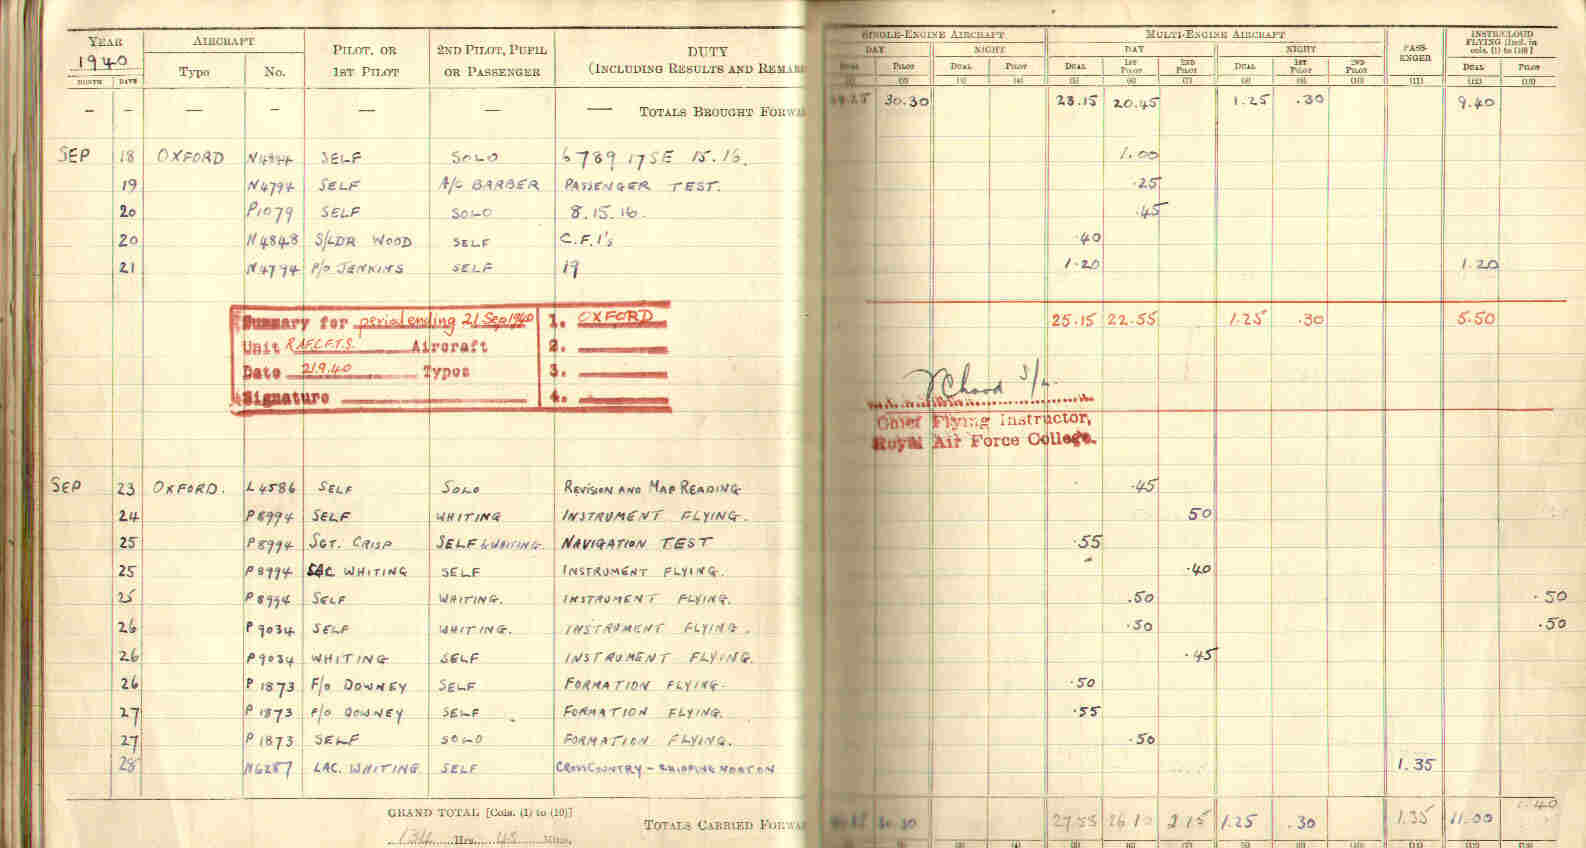 YEAR AIRCRAFT PILOT, OR 1ST PILOT 2ND PILOT, PUPIL OR PASSENGER DUTY (INCLUDING RESULTS AND REMAR SINGLE-ENGINE AIRCRAFT MULTI-ENGINE AIRCRAFT PASS-ENGER INSTR/CLOUD FLYING [Incl. in cols. (1) to (10)]
1940 Type No. DAY NIGHT DAY NIGHT
MONTH DATE DUAL PILOT DUAL PILOT DUAL 1ST PILOT 2ND PILOT DUAL 1ST PILOT 2ND PILOT DUAL PILOT
(1) (2) (3) (4) (5) (6) (7) (8) (9) (10) (11) (12) (13)
— — — — — — — TOTALS BROUGHT FORWA 30.30 23.15 20.45 1.25 .30 9.40
SEP 18 OXFORD N4844 SELF SOLO 6 7 8 9 17SE 15.16. 1.00
19 N4794 SELF A/C BARBER PASSENGER TEST. .25
20 P1079 SELF SOLO 8.15.16. .45
20 N4848 S/LDR WOOD SELF C.F.I's .40
21 N4794 P/O JENKINS SELF 19 1.20 1.20
Summary for period ending 21 Sep 1940 1. OXFORD 25.15 22.55 1.25 .30 5.50
Unit R.A.F.C.F.T.S. Aircraft 2.
Date 21.9.40 Types 3.
Signature 4.
Chief Flying Instructor,
Royal Air Force College.
SEP 23 OXFORD. L4586 SELF SOLO REVISION AND MAP READING .45
24 P8994 SELF WHITING INSTRUMENT FLYING. 50
25 P8994 SGT. CRISP SELF & WHITING. NAVIGATION TEST .55
25 P8994 LAC WHITING SELF INSTRUMENT FLYING. .40
25 P8994 SELF WHITING. INSTRUMENT FLYING. .50 .50
26 P9034 SELF WHITING. INSTRUMENT FLYING. .50 .50
26 P9034 WHITING SELF INSTRUMENT FLYING. .45
26 P1873 F/O DOWNEY SELF FORMATION FLYING. .50
27 P1873 F/O DOWNEY SELF FORMATION FLYING. .55
27 P1873 SELF SOLO FORMATION FLYING. .50
28 N6287 LAC. WHITING. SELF CROSS COUNTRY – CHIPPING NORTON 1.35
GRAND TOTAL [Cols. (1) to (10)] TOTALS CARRIED FORWA 30.30 27.55 26.10 2.15 1.25 .30 1.35 11.00 1.40
134 Hrs. 45 Mins.